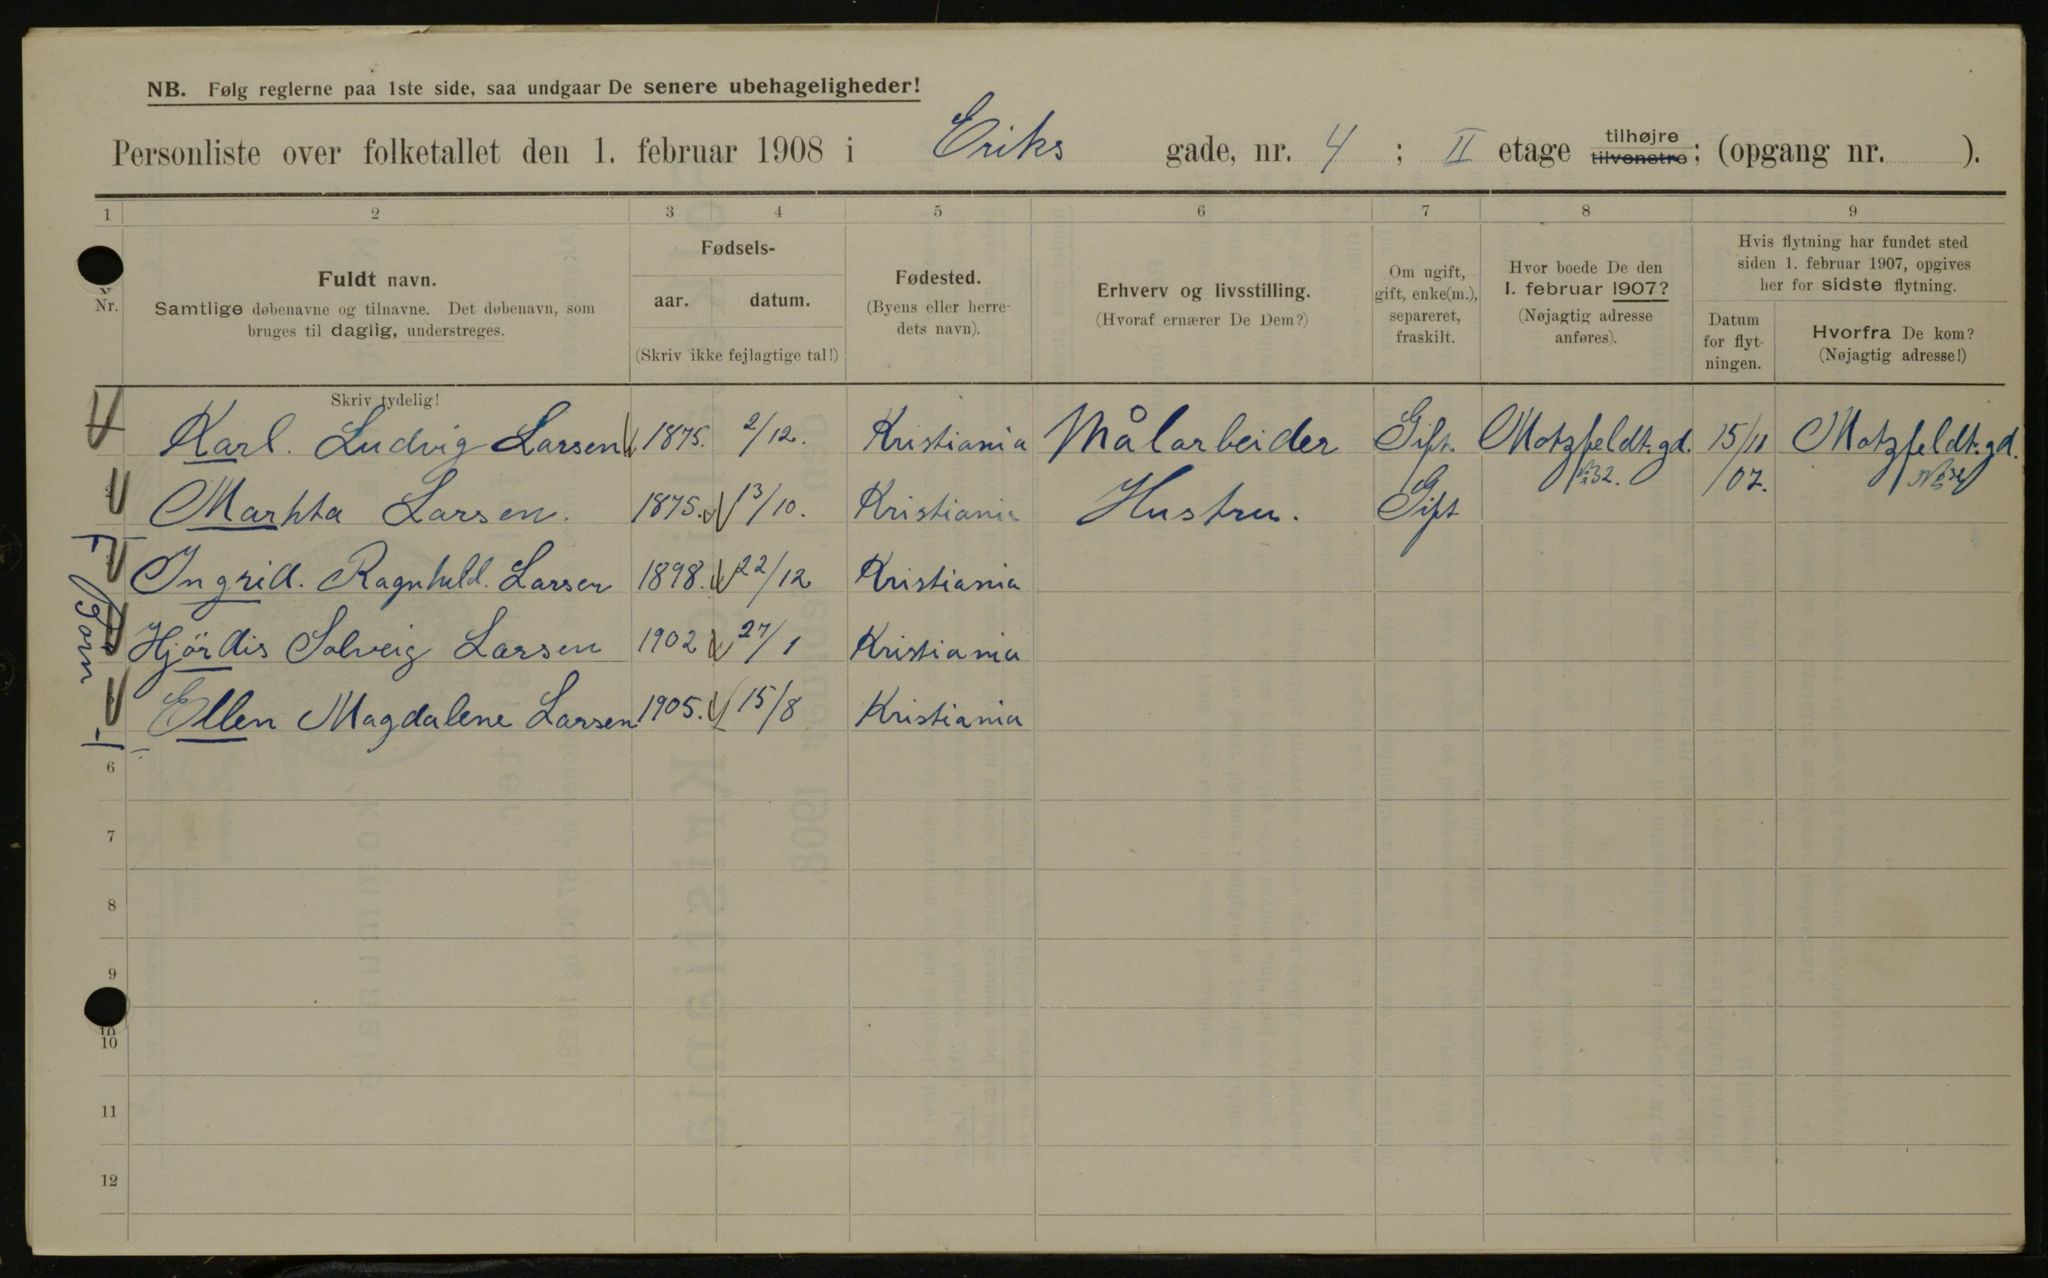 NB. Følg reglerne paa 1ste side, saa undgaar De senere ubehageligheder!
Personliste over folketallet den 1. februar 1908 i Eriks gade, nr. 4 ; II etage tilhøjre tilvenstre; (opgang nr. ).
1 2 3 4 5 6 7 8 9
Nr.
Fuldt navn.
Samtlige døbenavne og tilnavne. Det døbenavn, som
bruges til daglig, understreges.
Fødsels-
aar. datum.
(Skriv ikke fejlagtige tal!)
Fødested.
(Byens eller herre-
dets navn).
Erhverv og livsstilling.
(Hvoraf ernærer De Dem?)
Om ugift,
gift, enke(m.),
separeret,
fraskilt.
Hvor boede De den
1. februar 1907?
(Nøjagtig adresse
anføres).
Hvis flytning har fundet sted
siden 1. februar 1907, opgives
her for sidste flytning.
Datum
for flyt-
ningen.
Hvorfra De kom?
(Nøjagtig adresse!)
Skriv tydelig!
Karl. Ludvig Larsen 1875. 2/12. Kristiania Målarbeider Gift. Motzfeldt.gd. 15/11 Motzfeldt.gd.
№32. /07.
Larsen. 1875. 13/10. Kristiania Hustru. Gift
Ingrid. Ragnhild. Larsen 1898. 22/12 Kristiania
Hjördis Solveig Larsen 1902 27/1 Kristiania
Ellen Magdalene Larsen 1905. 15/8 Kristiania
Börn
6
7
8
9
10
10
11
12